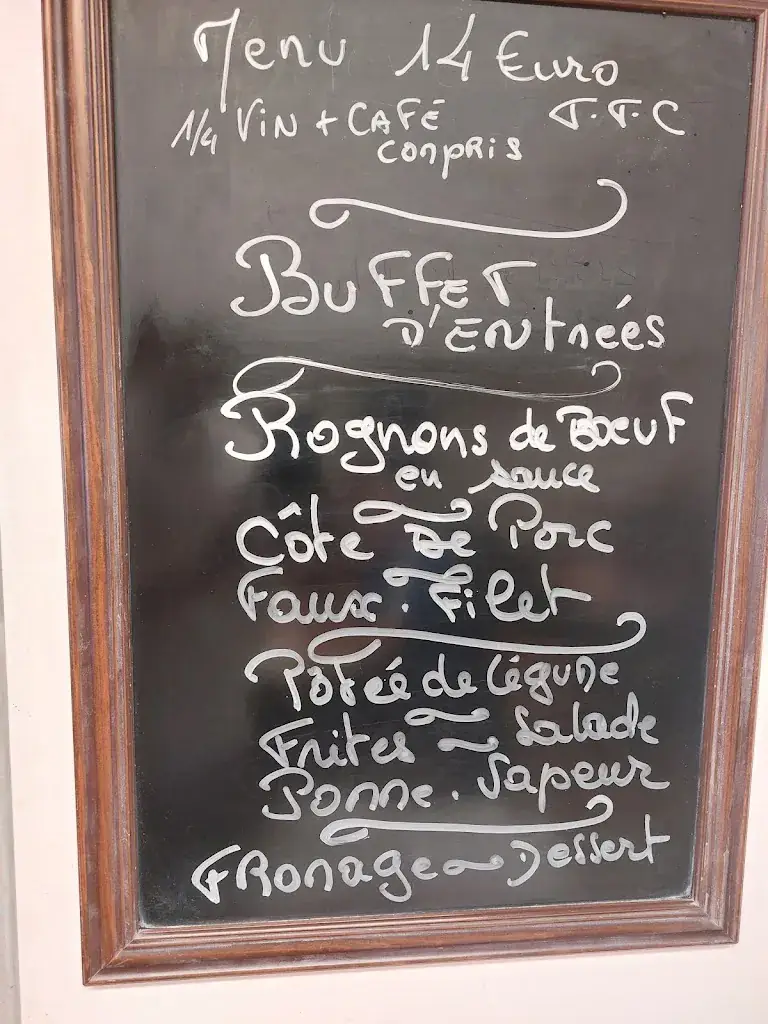 Menu 14 Euro
1/4 ViN + CAFÉ T.T.C
compris
BUFFET
D'ENtrées
Rognons de BŒUF
en sauce
Côte De Porc
Faux-Filet
Potée de légume
Frites ~ Salade
Pomme. Vapeur
FRomage ~ Dessert